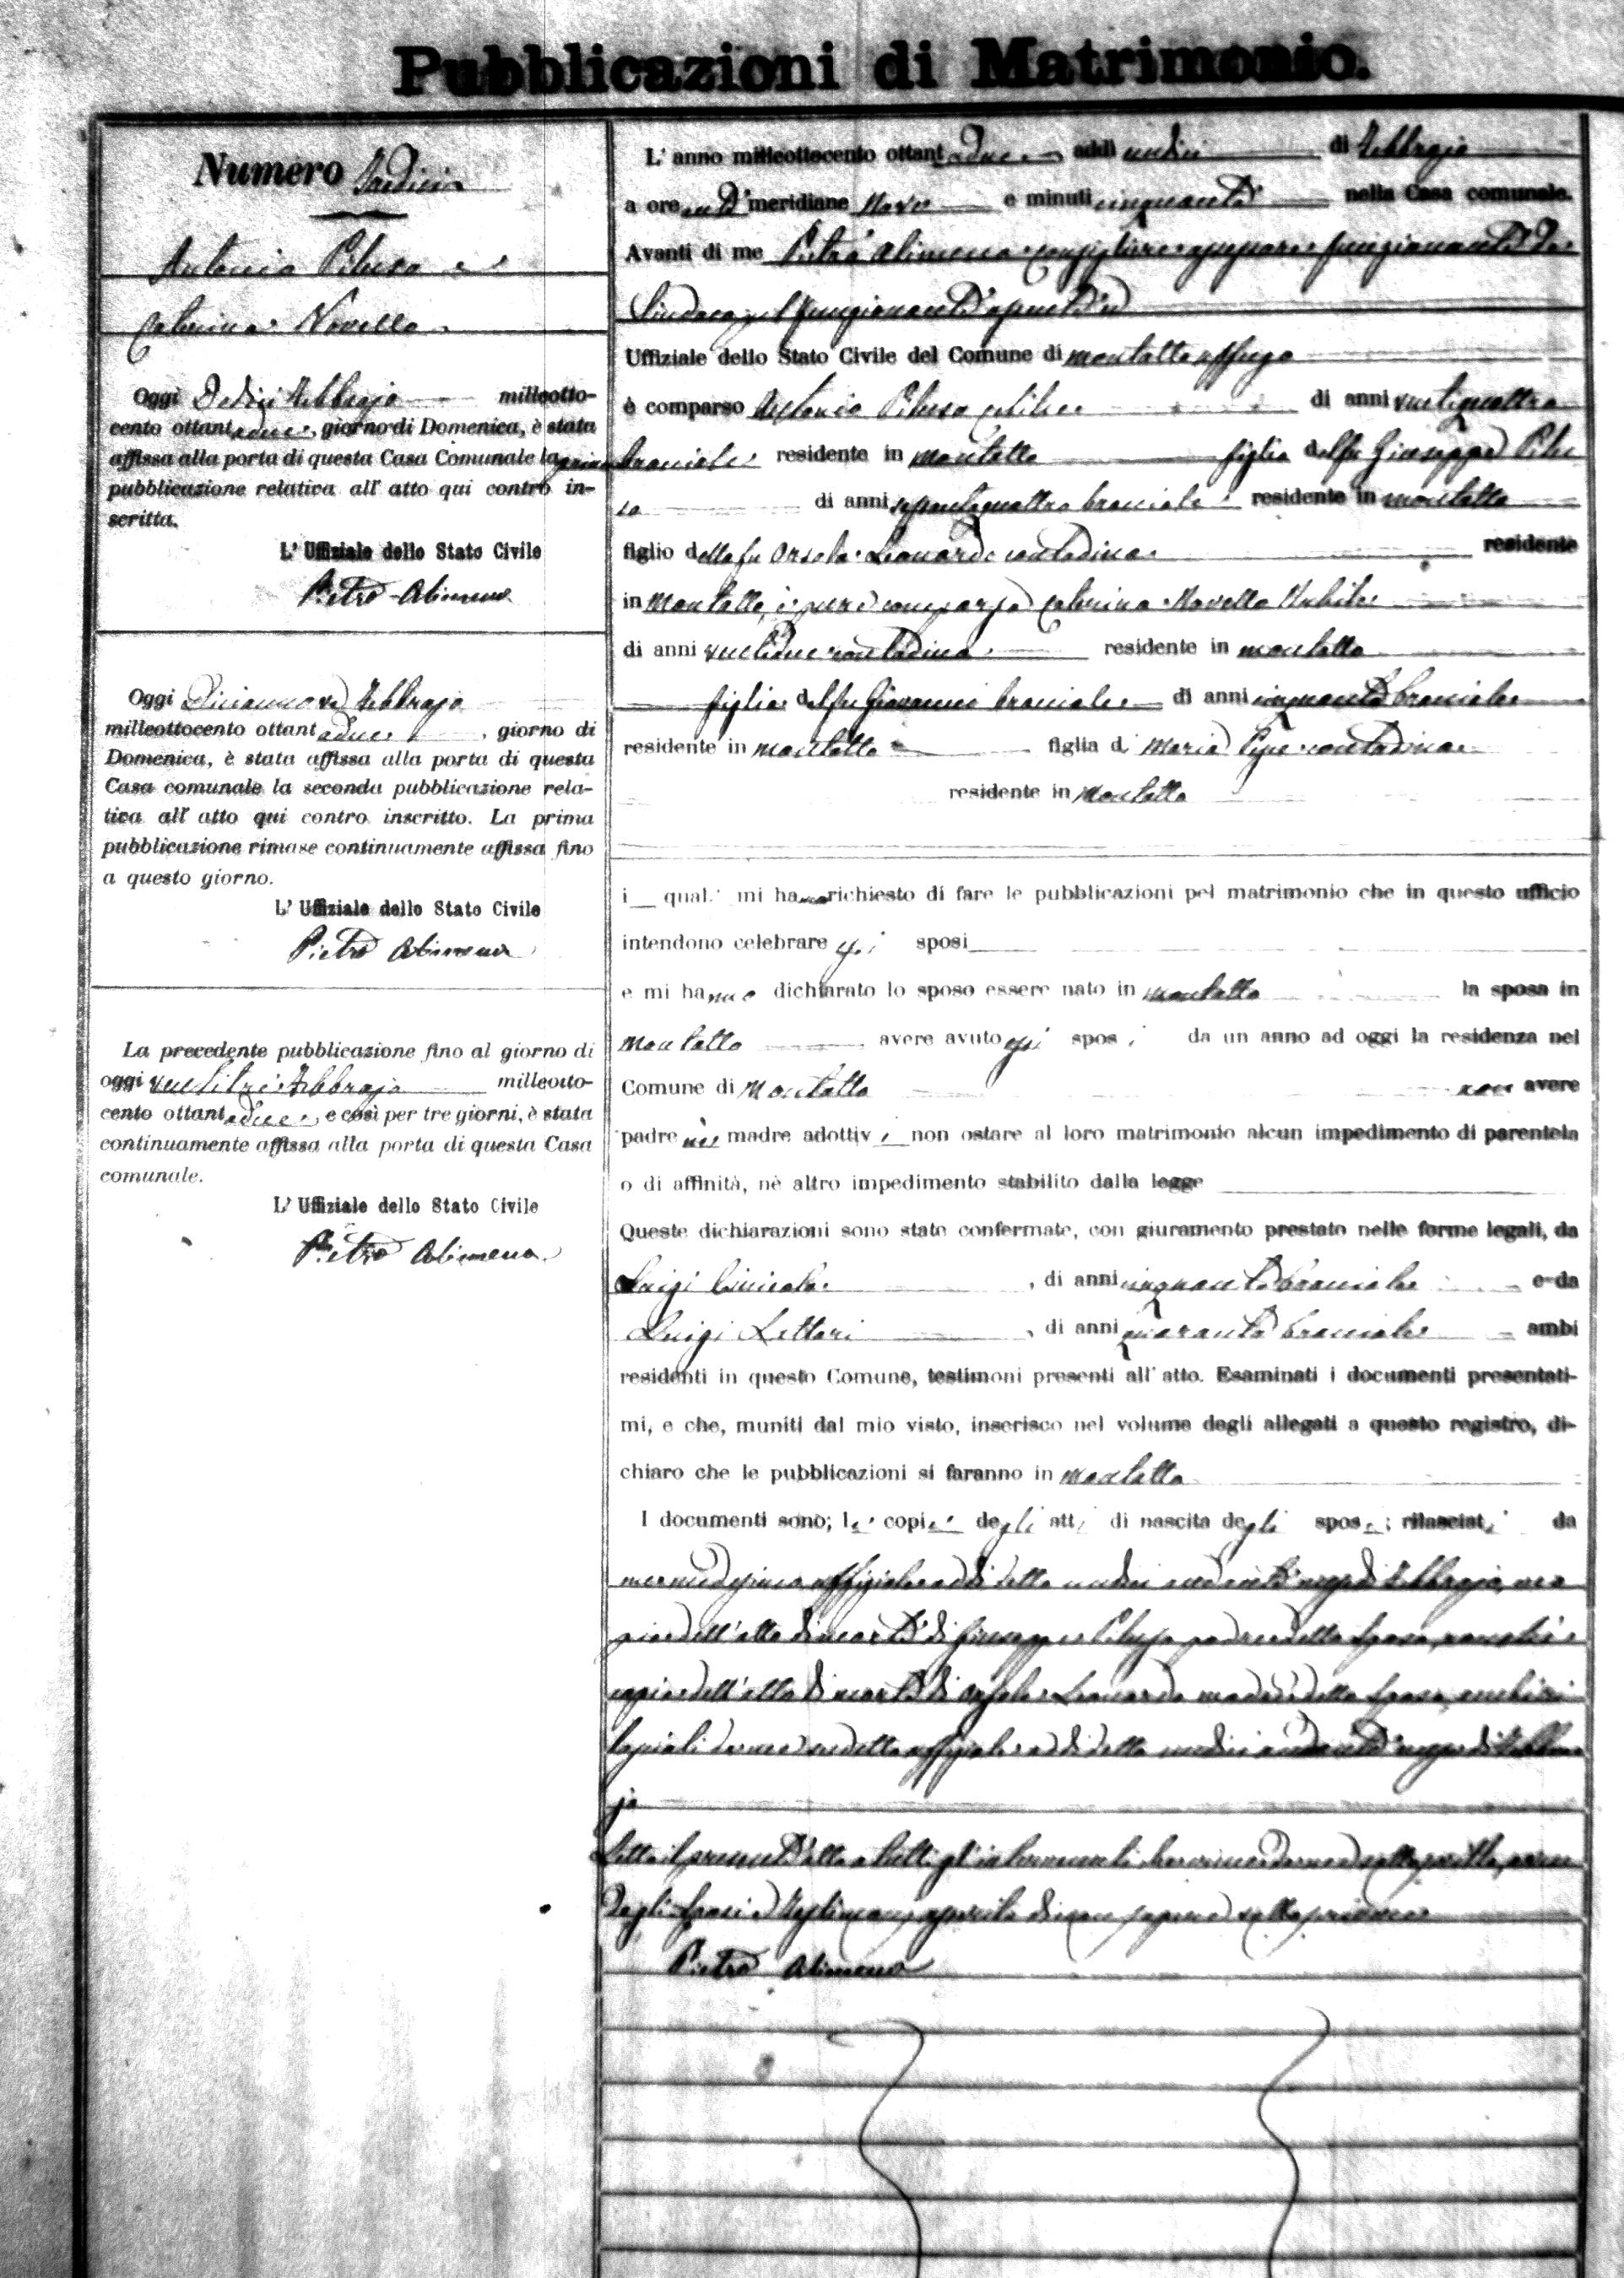 Pubblicazioni di Matrimonio.
Numero Tredici
Antonio Piluso e
Caterina Novello
Oggi Dodici Febbrajo milleotto-
cento ottantadue, giorno di Domenica, è stata
affissa alla porta di questa Casa Comunale la prima
pubblicazione relativa all' atto qui contro in-
scritta.
L' Uffiziale dello Stato Civile
Pietro Alimena
Oggi Diciannove Febbrajo
milleottocento ottantadue, giorno di
Domenica, è stata affissa alla porta di questa
Casa comunale la seconda pubblicazione rela-
tiva all' atto qui contro inscritto. La prima
pubblicazione rimase continuamente affissa fino
a questo giorno.
L' Uffiziale dello Stato Civile
Pietro Alimena
La precedente pubblicazione fino al giorno di
oggi ventitre Febbrajo milleotto-
cento ottantadue, e così per tre giorni, è stata
continuamente affissa alla porta di questa Casa
comunale.
L' Uffiziale dello Stato Civile
Pietro Alimena
L' anno milleottocento ottantadue addì undici di Febbrajo
a ore anti meridiane Nove e minuti cinquanta nella Casa comunale.
Avanti di me Pietro Alimena consigliere funzionante da
Sindaco
Uffiziale dello Stato Civile del Comune di Montalto uffugo
è comparso Antonio Piluso celibe di anni ventiquattro
bracciale residente in Montalto figlio del fu Giuseppe Pilu
so di anni sessantaquattro bracciale residente in Montalto
figlio della fu Orsola Leonardo contadina residente
in Montalto, è pure comparsa Caterina Novello Nubile
di anni ventidue contadina residente in Montalto
figlia del fu Giovanni bracciale di anni cinquanta bracciale
residente in Montalto figlia di Maria Pepe contadina
residente in Montalto
i quali mi hanno richiesto di fare le pubblicazioni pel matrimonio che in questo ufficio
intendono celebrare essi sposi
e mi hanno dichiarato lo sposo essere nato in Montalto la sposa in
Montalto avere avuto essi sposi da un anno ad oggi la residenza nel
Comune di Montalto non avere
padre nè madre adottivi non ostare al loro matrimonio alcun impedimento di parentela
o di affinità, nè altro impedimento stabilito dalla legge
Queste dichiarazioni sono state confermate, con giuramento prestato nelle forme legali, da
Luigi, di anni cinquanta bracciale e da
Luigi Lettari, di anni quaranta bracciale ambi
residenti in questo Comune, testimoni presenti all' atto. Esaminati i documenti presentati-
mi, e che, muniti dal mio visto, inserisco nel volume degli allegati a questo registro, di-
chiaro che le pubblicazioni si faranno in Montalto
I documenti sono; le copie degli atti di nascita degli sposi; rilasciati da
me medesimo uffiziale addì detto undici andante mese di Febbrajo, co
pia dell' atto di morte di Giuseppe Piluso padre dello sposo, nonchè
copia dell' atto di morte di Orsola Leonardo madre dello sposo, anche ri
lasciati da me suddetto uffiziale addì detto undici andante mese di Febbra
jo
Letto il presente atto a tutti gl' intervenuti sottoscritto, aven
do gli sposi e testimoni asserito di non sapere sottoscrivere
Pietro Alimena